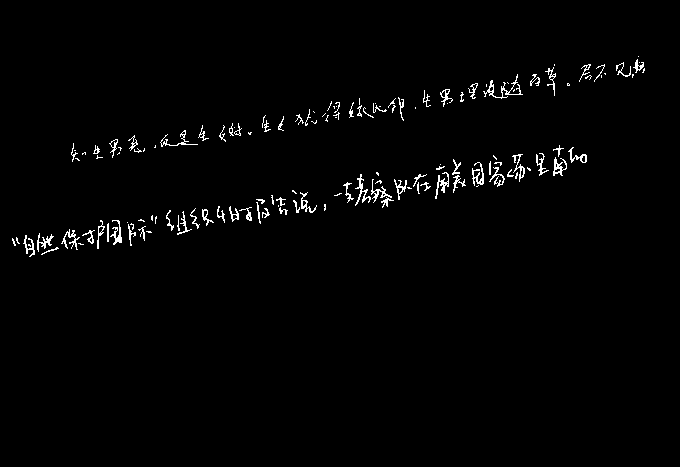 知生男恶，反是生女好。生女犹得嫁比邻，生男埋没随百草。君不见，
“自然保护国际”组织的报告说，一支考察队在南美国家苏里南的